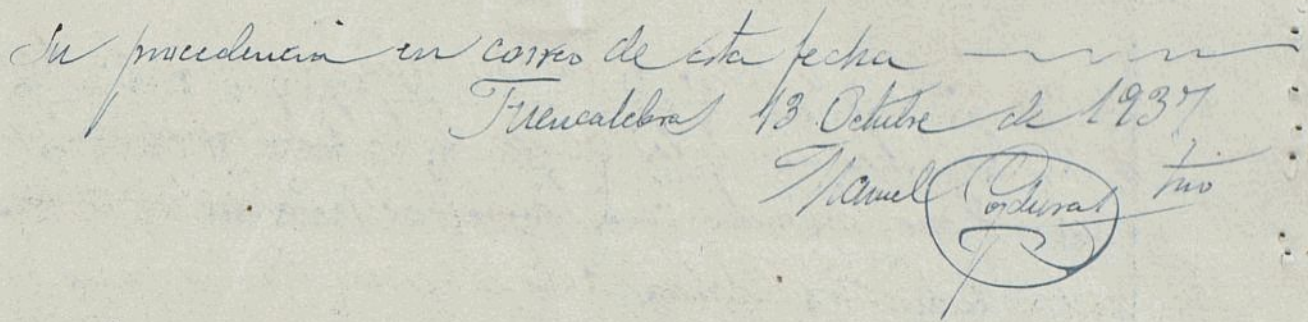 Su procedencia en correo de esta fecha
Fuencalebras 13 Octubre de 1937
Manuel Corduras